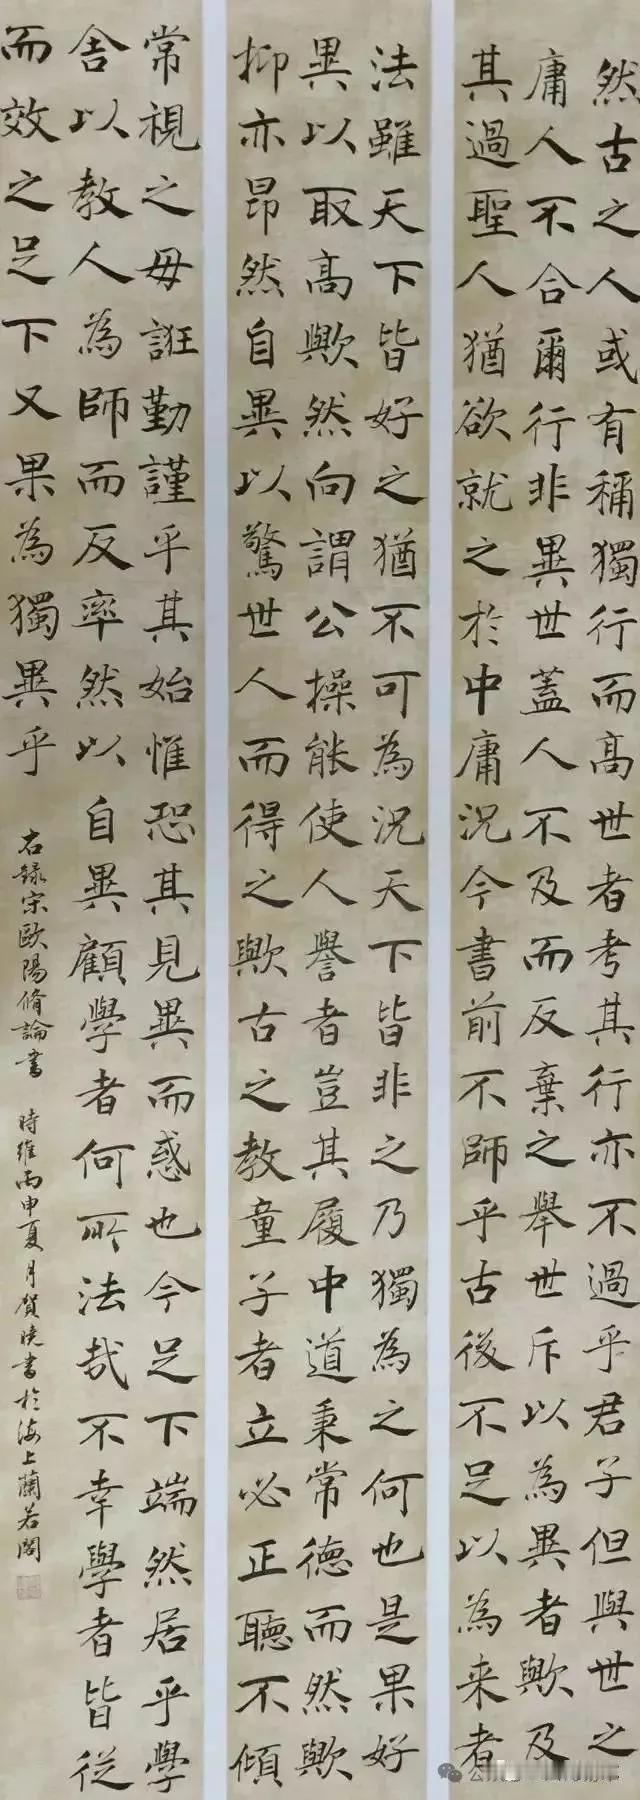 然古之人或有稱獨行而高世者考其行亦不過乎君子但與世之
庸人不合爾行非異世蓋人不及而反棄之舉世斥以為異者歟及
其過聖人猶欲就之於中庸況今書前不師乎古後不足以為来者
法雖天下皆好之猶不可為況天下皆非之乃獨為之何也是果好
異以取高歟然向謂公操能使人譽者豈其履中道秉常德而然歟
抑亦昂然自異以驚世人而得之歟古之教童子者立必正聽不傾
常視之毋誑勤謹乎其始惟恐其見異而惑也今足下端然居乎學
舍以教人為師而反率然以自異顧學者何所法哉不幸學者皆從
而效之足下又果為獨異乎
右錄宋歐陽脩論書 時維丙申夏月賀曉書於海上蘭若閣
公众号